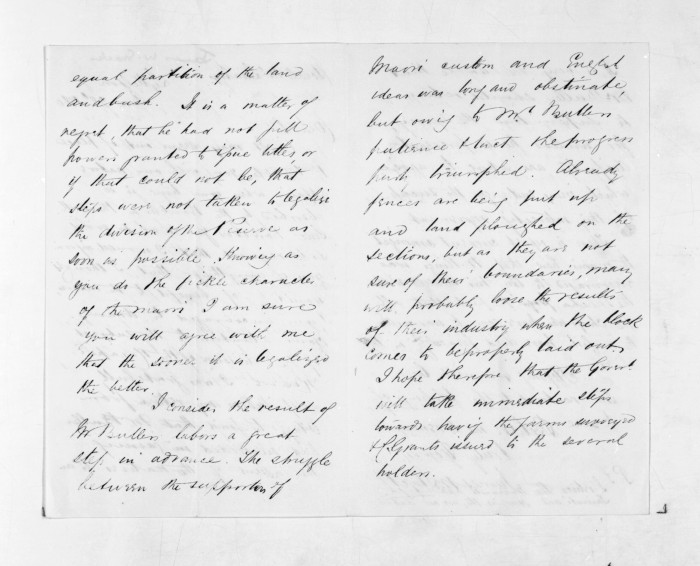 equal partition of the land
and bush. It is a matter of
regret, that he had not full
powers granted to issue titles, or
if that could not be, that
steps were not taken to legalise
the division of the Reserve as
soon as possible. Knowing as
you do the fickle character
of the maori I am sure
you will agree with me
that the sooner it is legalized
the better.
I consider the result of
Mr Butlers labors a great
step in advance. The struggle
between the supporters of
Maori custom and English
ideas was long and obstinate,
but owing to Mr Butlers
patience & tact the progress
party triumphed. Already
fences are being put up
and land ploughed on the
sections, but as they are not
sure of their boundaries, many
will probably loose the results
of their industry when the block
comes to be properly laid out.
I hope therefore that the Govt
will take immediate steps
towards having the farms surveyed
& C. Grants issued to the several
holders.